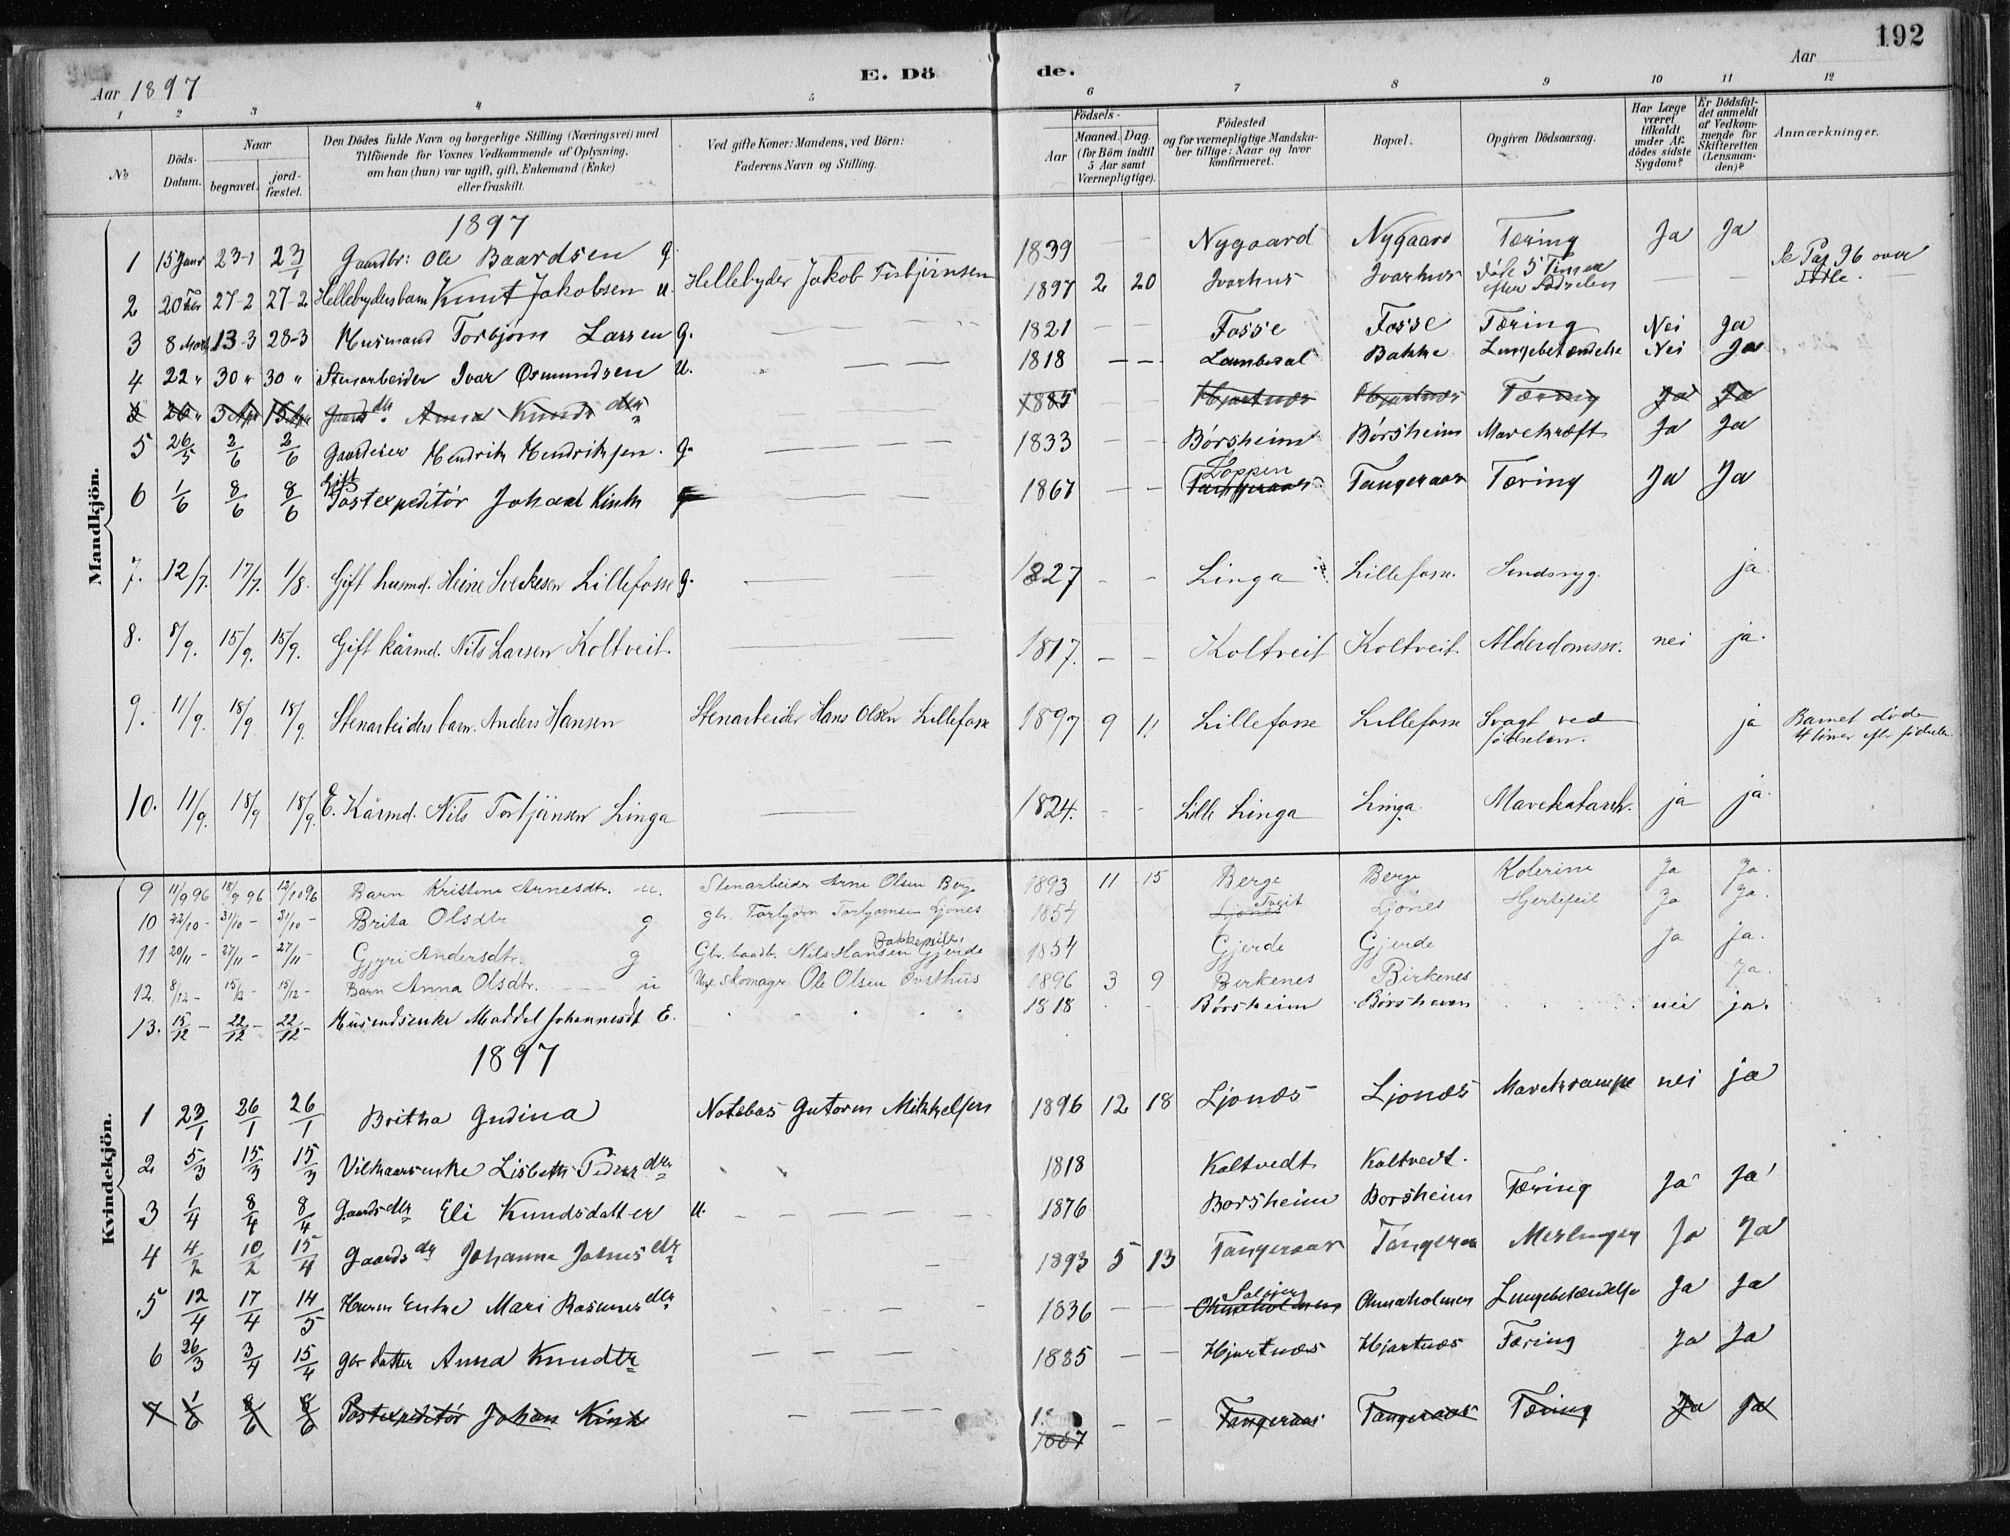 192
Aar 1897
E. Dö de.
Aar
1 2 3 4 5 6 7 8 9 10 11 12
No
Döds-Datum.
Naar
begravet. jordfæstet.
Den Dödes fulde Navn og borgerlige Stilling (Næringsvei) med Tilföiende for Voxnes Vedkommende af Oplysning, om han (hun) var ugift, gift, Enkemand (Enke) eller fraskilt.
Ved gifte Koner: Mandens, ved Börn: Faderens Navn og Stilling.
Födsels-
Aar Maaned. Dag. (for Börn indtil 5 Aar samt Værnepligtige).
Födested og for værnepligtige Mandskaber tillige: Naar og hvor konfirmeret.
Bopæl.
Opgiven Dödsaarsag.
Har Læge været tilkaldt under Afdödes sidste Sygdom?
Er Dödsfaldet anmeldt af Vedkommende for Skifteretten (Lensmanden)?
Anmærkninger.
Mandkjön.
1897
1 15 Janr 23-1 23/1 Gaardbr: Ole Baardsen g. 1839 — — Nygaard Nygaard Tæring Ja Ja
2 20 Febr 27-2 27-2 Hellebydersbarn Knut Jakobsen u. Hellebyder Jakob Torbjörnsen 1897 2 20 Ivarhus Ivarhus döde 5 Timer efter Fødselen — — Se Pag 96 over Födte.
3 8 Marts 13-3 28-3 Husmand Torbjörn Larsen g. 1821 — — Fosse Fosse Tæring Nei Ja
4 22 " 30 " 30 " Stenarbeider Ivar Osmundsen u. 1818 — — Bakke Lungebetændelse Nei Ja
26 " 3 Apr 15 Apr Gaardsdtr Anna Knudsdtr 1885 Hjartnæs Hjartnæs Tæring Ja Ja
5 26/5 2/6 2/6 Gaardeier Hendrik Hendriksen. g. 1833 — — Börsheim Börsheim Mavekræft Ja Ja
6 1/6 8/6 8/6 Gift Postexpeditör Johan Kink 1867 — — Loppen Tangeraas Tangeraas Tæring Ja Ja
7. 12/7. 17/7. 1/8. Gift husmd. Heine Lillefosse g. 1827 - - Linga Lillefosse. Sindssyg. ja.
8. 8/9. 15/9. 15/9. Gift kårmd. Nils Larsen Koltveit. 1817. — — Koltveit Koltveit. Alderdomssv. nei ja.
9. 11/9. 18/9 18/9 Stenarbeiders barn. Anders Hansen Stenarbeider Hans Olsen Lillefosse 1897 9 11 Lillefosse Lillefosse Svagt ved fødselen. ja Barnet döde 4 timer efter födselen
10. 11/9. 18/9 18/9. E. Kårmd. Nils Torbjörnsen Linga 1824. - - Lille Linga Linga. Mavekatarrh. ja ja.
Kvindekjön.
9 11/9 96 18/9 96 12/10 96 Barn Kristine Arnesdtr. u. Stenarbeider Arne Olsen Berge 1893 11 15 Berge Berge Kolerine Ja Ja.
10 22/10 - 31/10 - 31/10 - Brita Olsdtr g. gbr. Torbjörn Torbjörnsen Ljones 1854 Tveit Ljones Ljönes Hjertefeil Ja Ja.
11 20/11 - 27/11 - 27/11 - Gyri Andersdtr. g Gbr. Nils Hansen Gjerde 1854 Gjerde Gjerde Ja Ja.
12. 8/12 - 15/12 - 15/12 - Barn Anna Olsdtr. u Skomager Ole Olsen Övsthus 1896 3 9 Birkenes Birkenes Ja.
13. 15/12 - 22/12 - 22/12 - Husmdsenke Maddel Johannesdt E. 1818 Börsheim Börsheim nei ja.
1897
1 23/1 26/1 26/1 Britha Gudina Notebas Gutorm Mikkelsen 1896 12 18 Ljonæs Ljonæs Mavekrampe nei ja
2 5/3 15/3 15/3 Vilkaarsenke Lisbeth Pedersdtr 1818 Koltvedt Koltvedt.
3 1/4 8/4 8/4 Gaardsdtr Eli Knudsdatter u. 1876 Borsheim Borsheim Tæring Ja Ja
4 4/2 10/2 15/4 Gaardsdtr Johanna Johnsdtr 1893 5 13 Tangeraas Tangeraas Meslinger Ja Ja
5 12/4 17/4 14/5 Husm Enke Mari Rasmusdtr 1836 — — Omaholmen Omaholmen Lungebetændelse Ja Ja
6 26/3 3/4 15/4 gbr datter Anna Knudtr 1885 — — Hjartnæs Hjartnæs Tæring Ja Ja
7 1/6 8/6 8/6 Postexpeditör Johan Kink 1867 — — Tangeraas Tangeraas Tæring Ja Ja